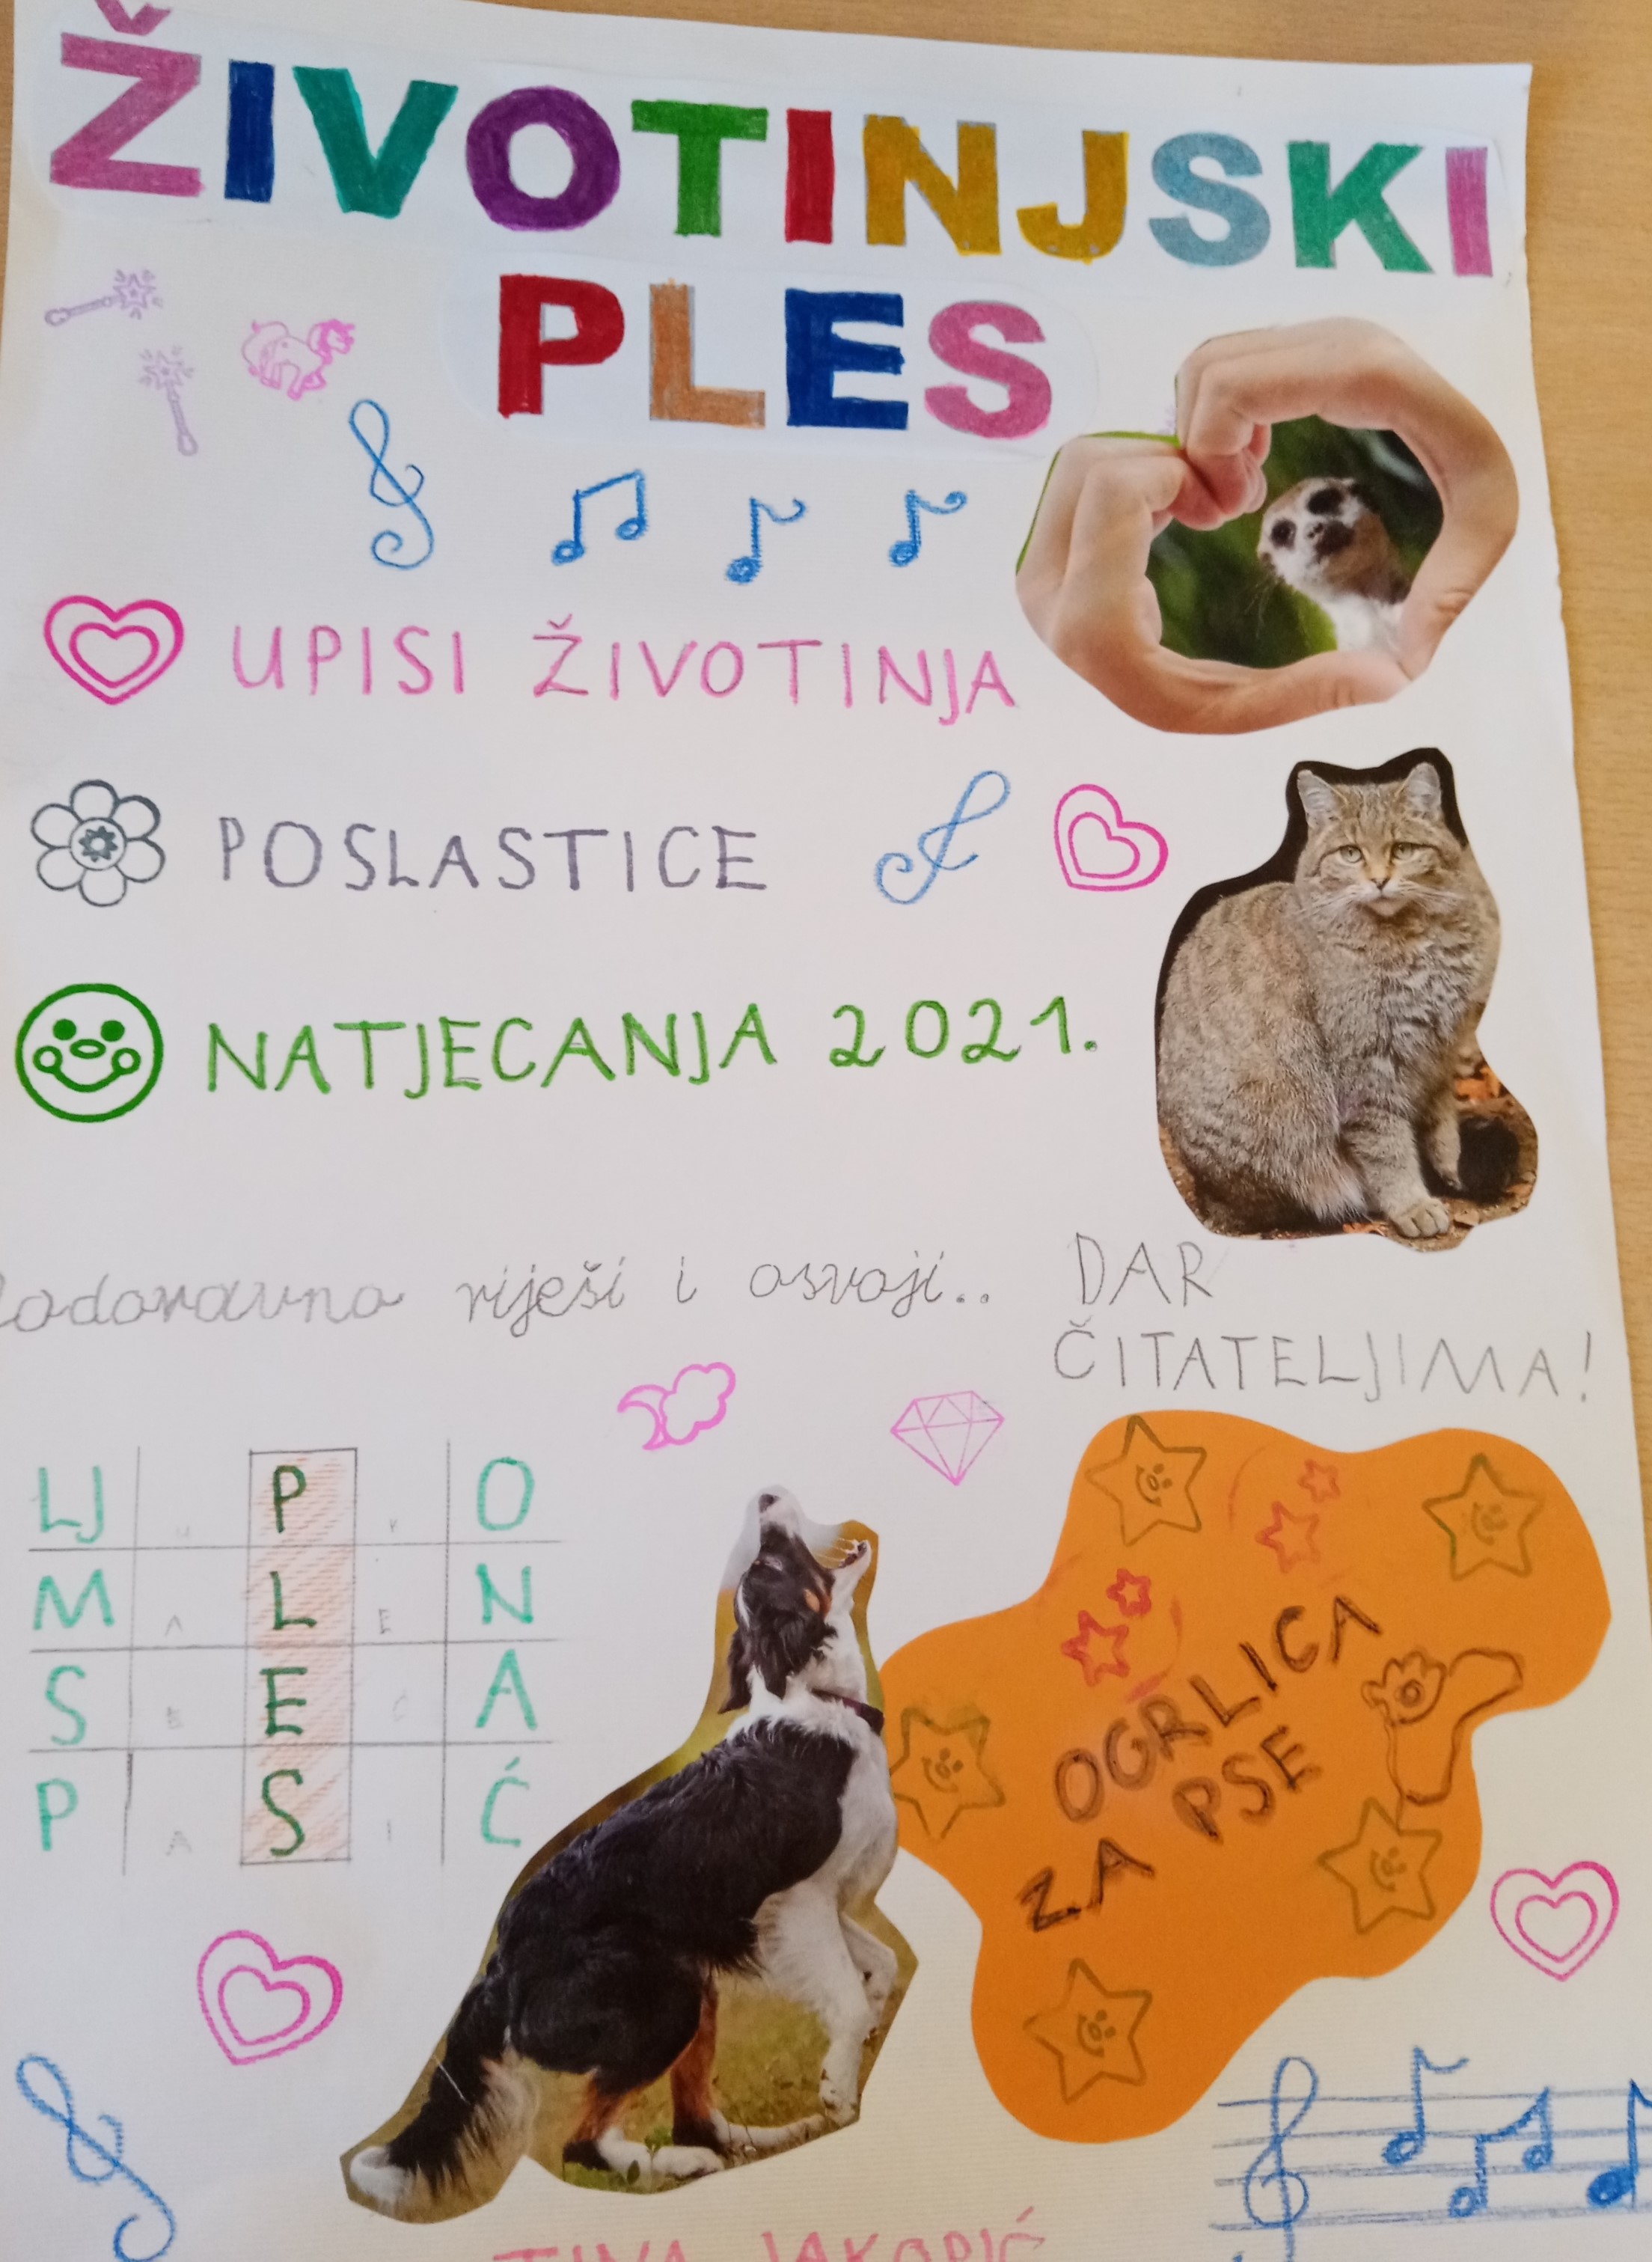 ŽIVOTINJSKI
PLES
UPISI ŽIVOTINJA
POSLASTICE
NATJECANJA 2021.
riješi i osvoji..
DAR
ČITATELJIMA!
LJ U P K O
M A L E N
S E E C A
P A S I Ć
OGRLICA
ZA PSE
TINA JAKOPIĆ